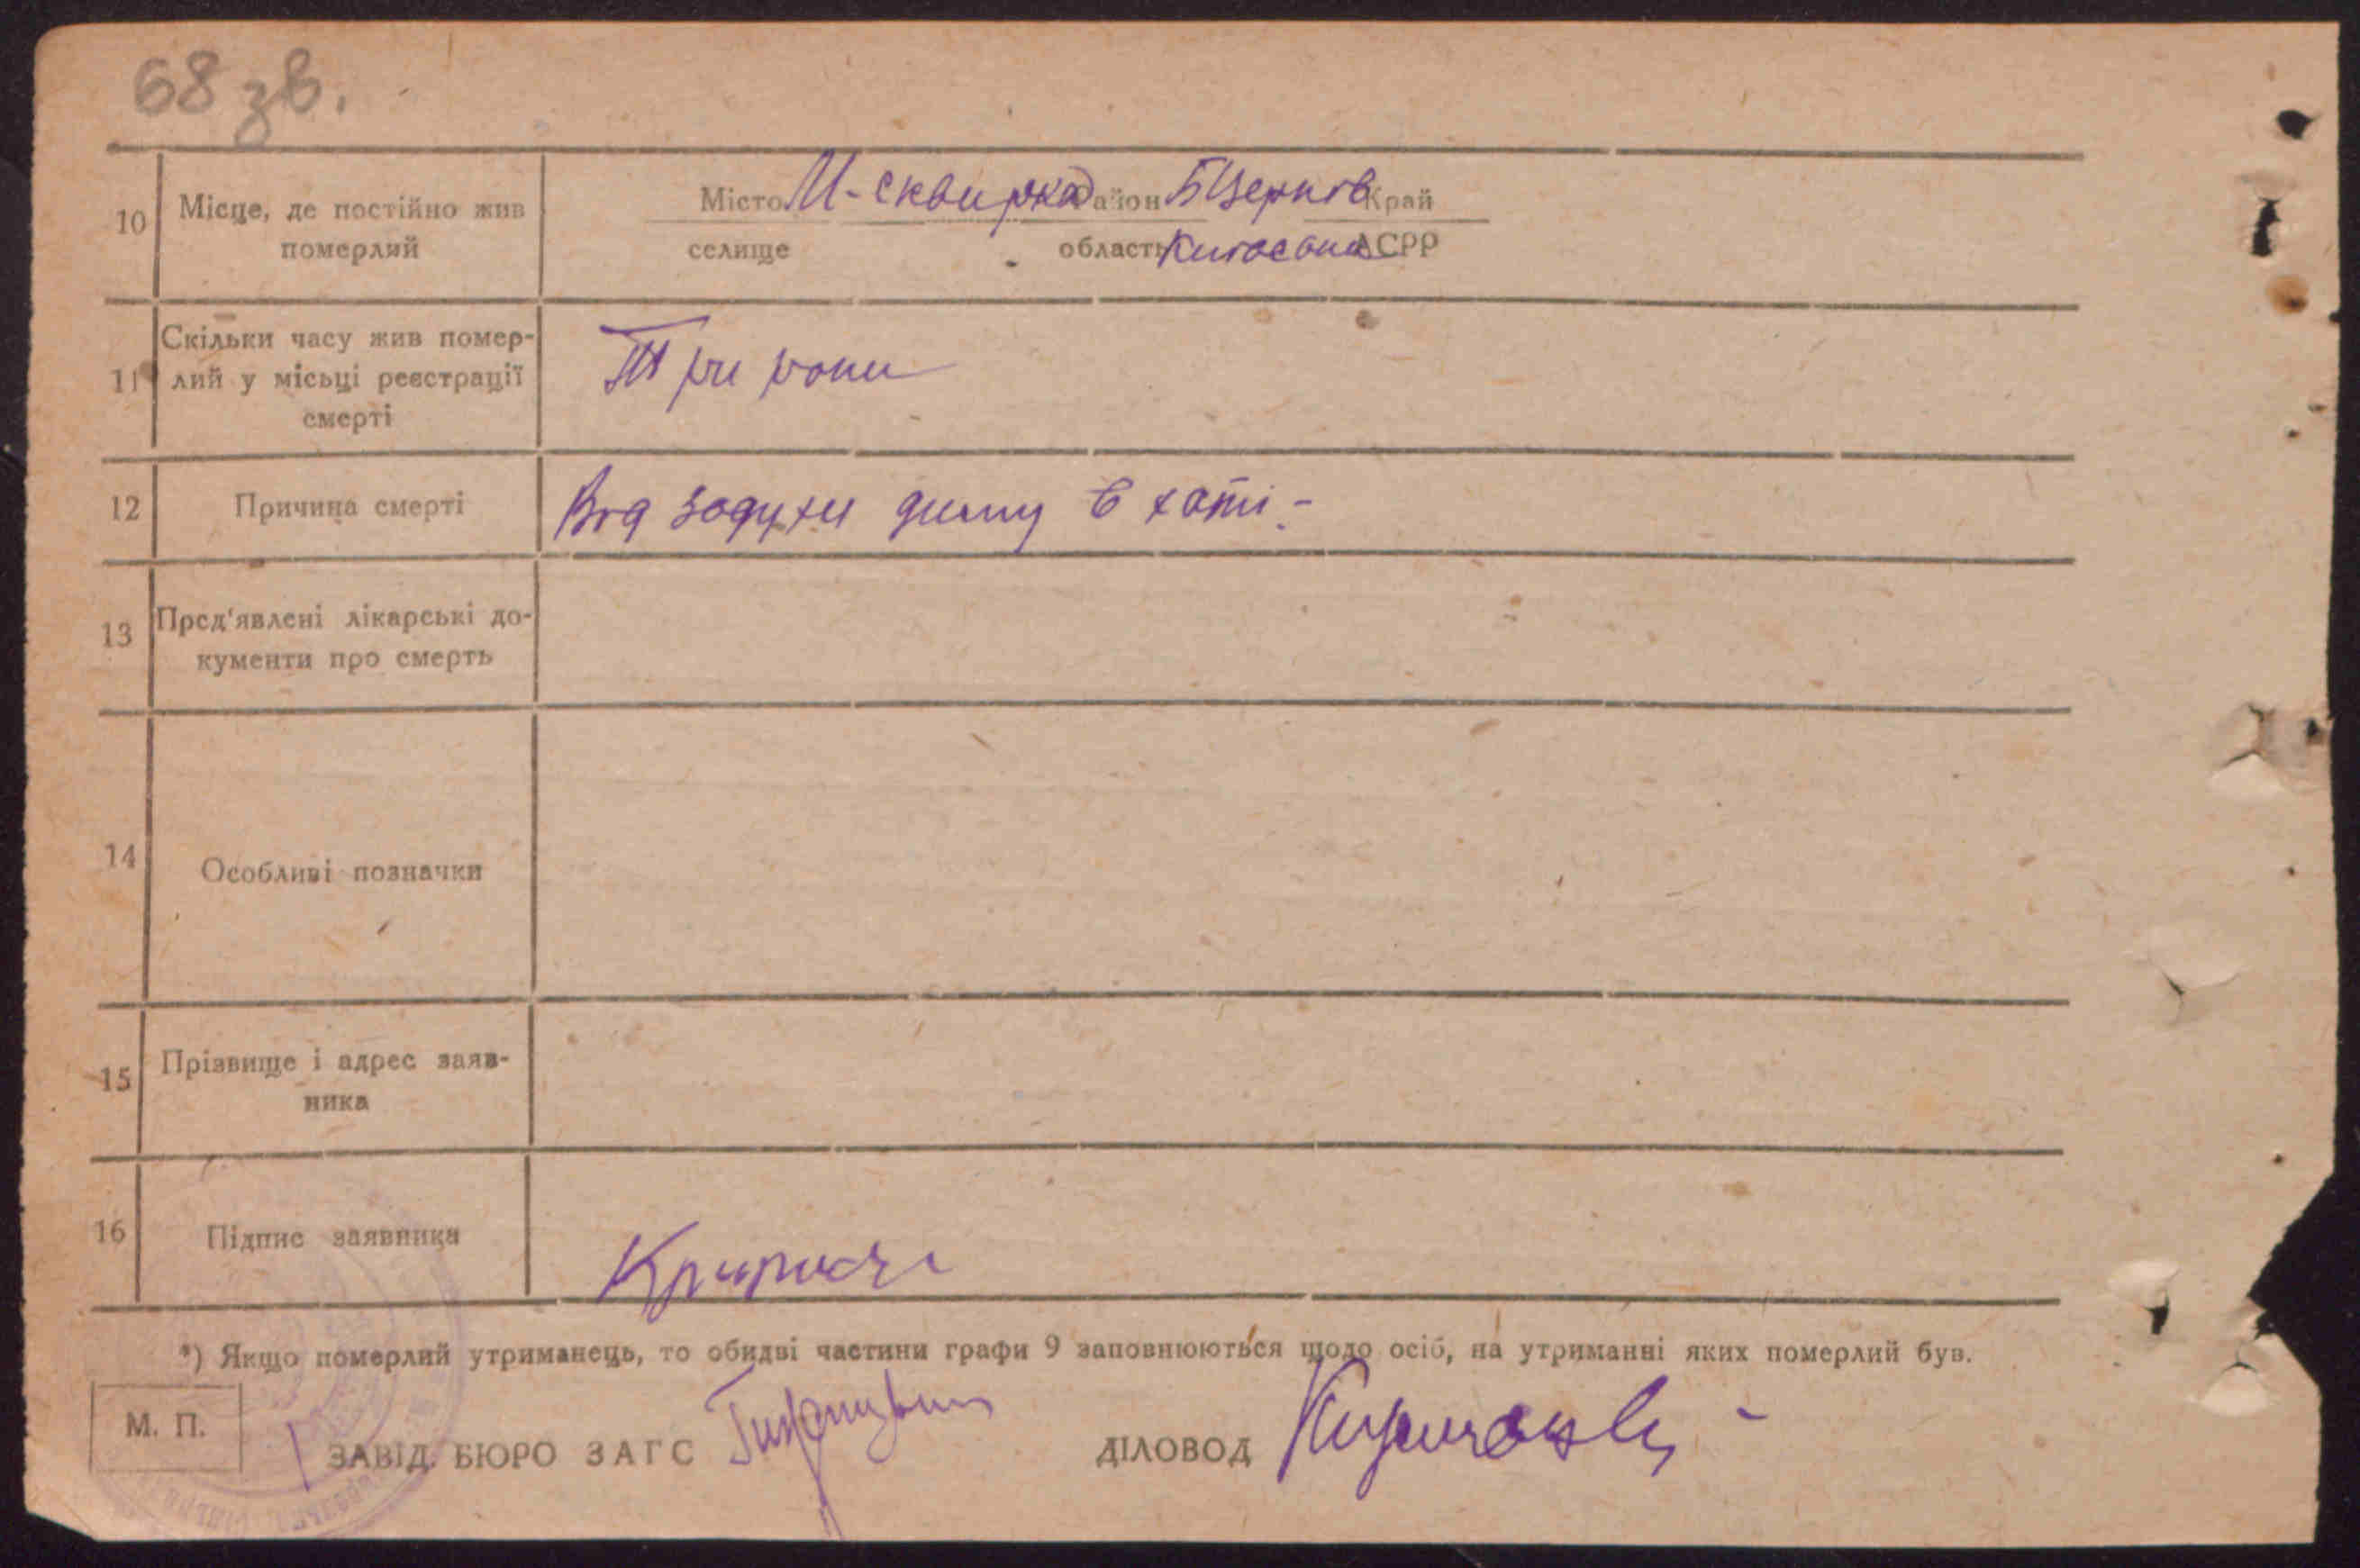 68 зв.
10 Місце, де постійно жив
померлий
Місто М-Сквирка Район БЦерків Край
селище область Київська АСРР
Скільки часу жив помер-
11 лий у місьці реєстрації
смерті
Три роки
12 Причина смерті
Від задухи диму в хаті.-
13 Пред'явлені лікарські до-
кументи про смерть
14 Особливі позначки
15 Прізвище і адрес заяв-
ника
16 Підпис заявника
*) Якщо померлий утриманець, то обидві частини графи 9 заповнюються щодо осіб, на утриманні яких померлий був.
М. П.
ЗАВІД. БЮРО ЗАГС ДІЛОВОД